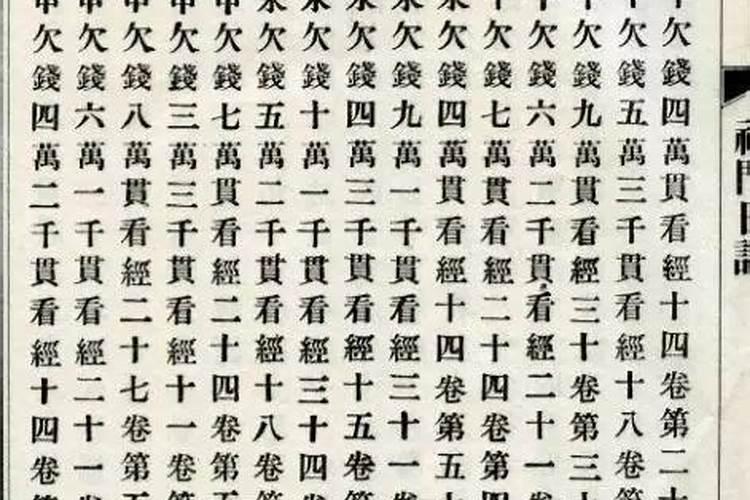 禪門日誦
欠錢四萬貫看經十四卷第二十
欠錢五萬三千貫看經十八卷第
欠錢九萬貫看經三十卷第三十
欠錢六萬二千貫看經二十一卷
欠錢七萬貫看經二十四卷第四
欠錢四萬貫看經十四卷第五十
欠錢九萬一千貫看經三十一卷
欠錢四萬三千貫看經十五卷第
欠錢十萬一千貫看經三十四卷
欠錢五萬二千貫看經十八卷第
欠錢七萬貫看經二十四卷第五
欠錢三萬三千貫看經十一卷第
欠錢八萬貫看經二十七卷第五
欠錢六萬一千貫看經二十一卷
欠錢四萬二千貫看經十四卷第